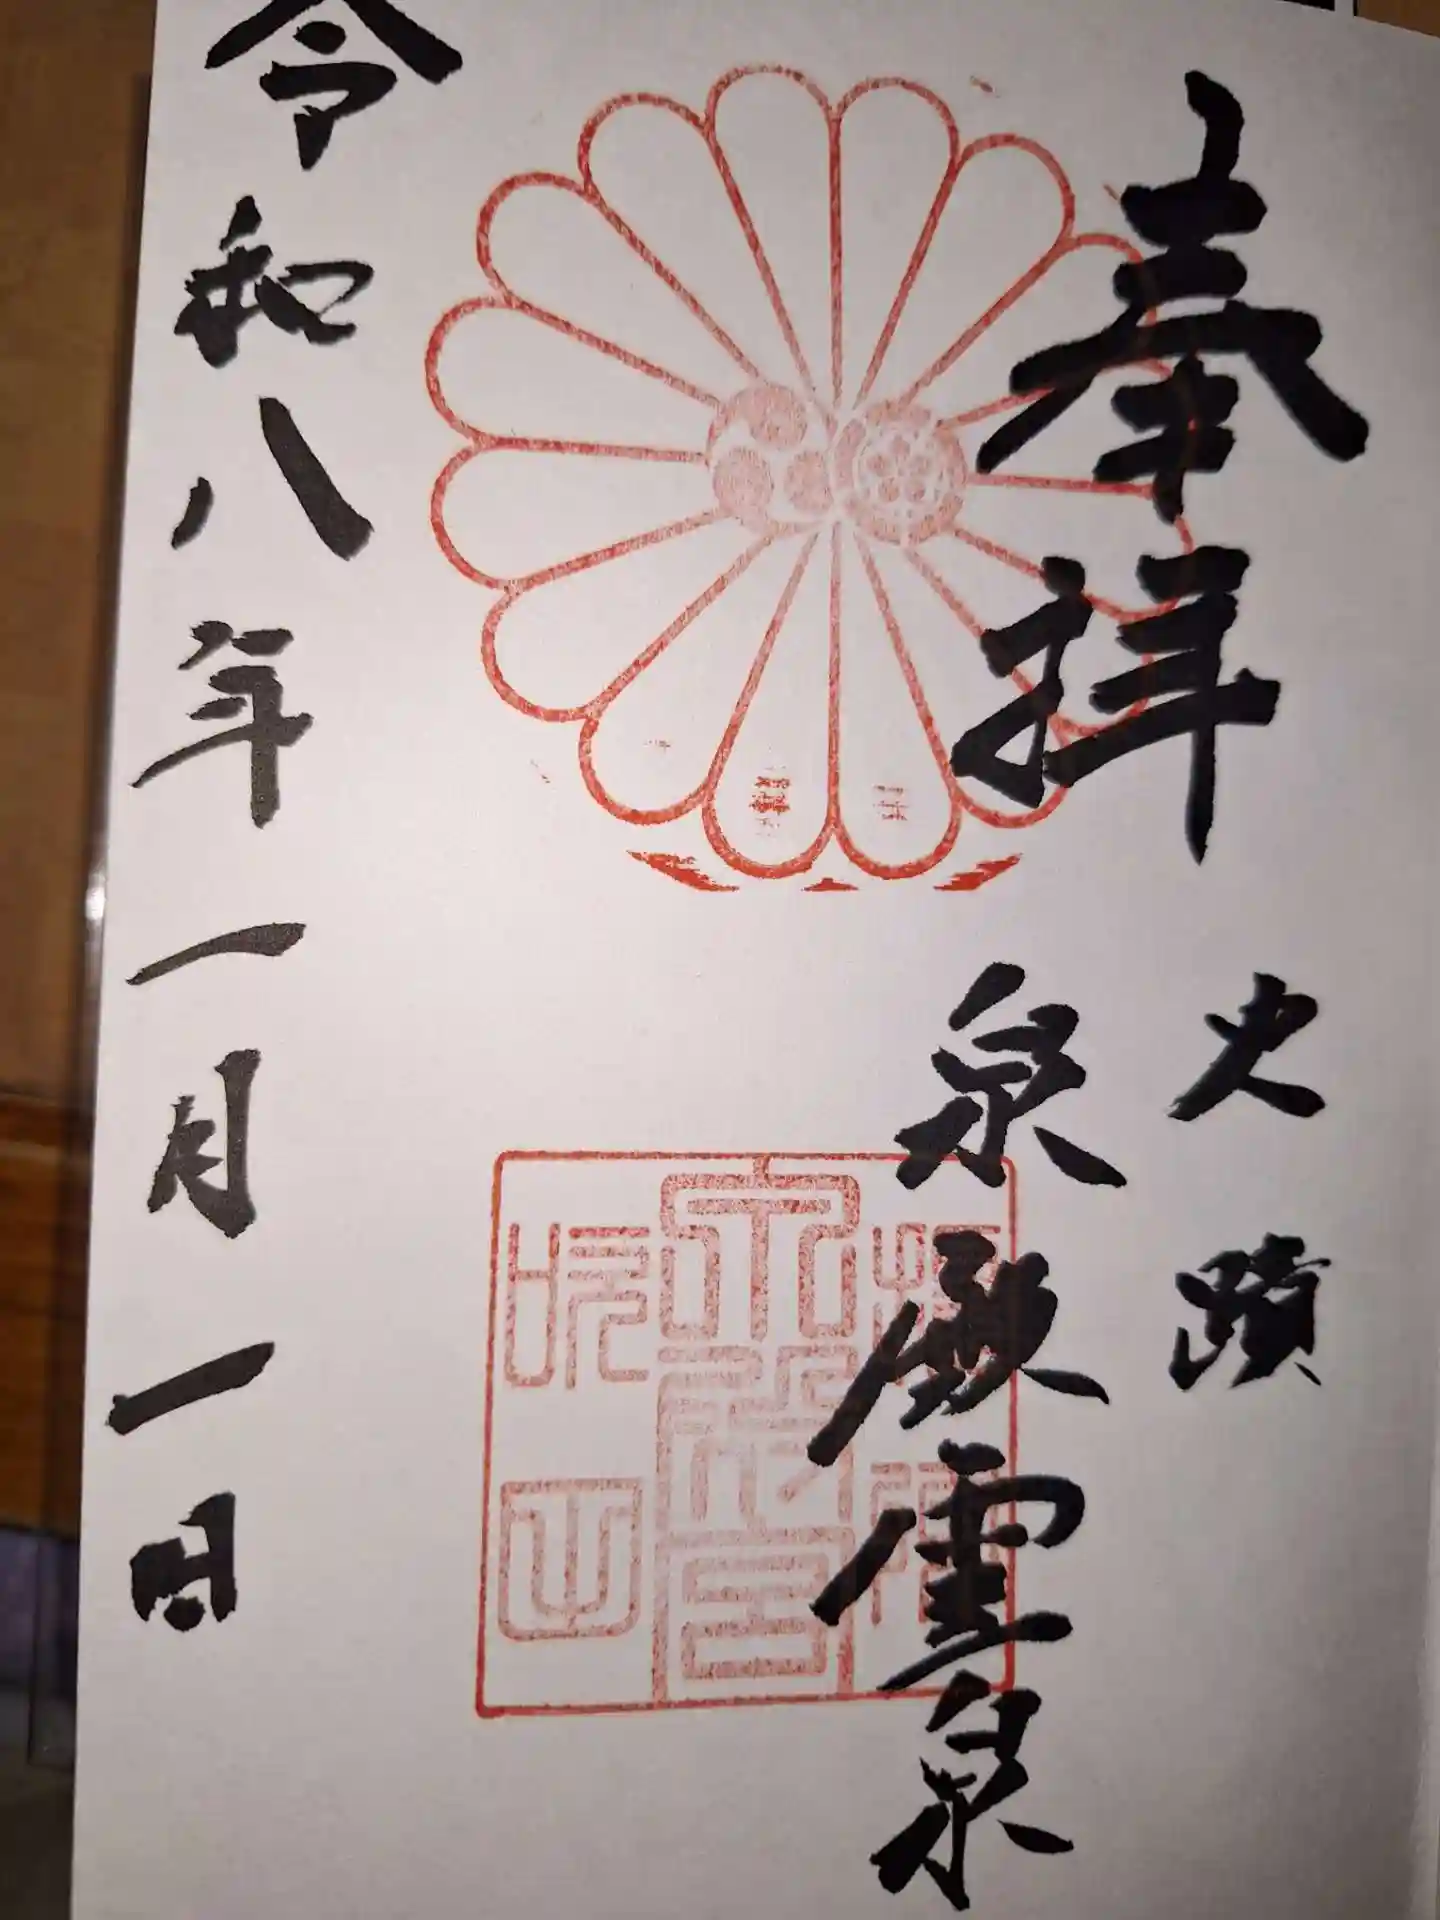 奉拝 史蹟
泉殿霊泉
令和八年一月一日